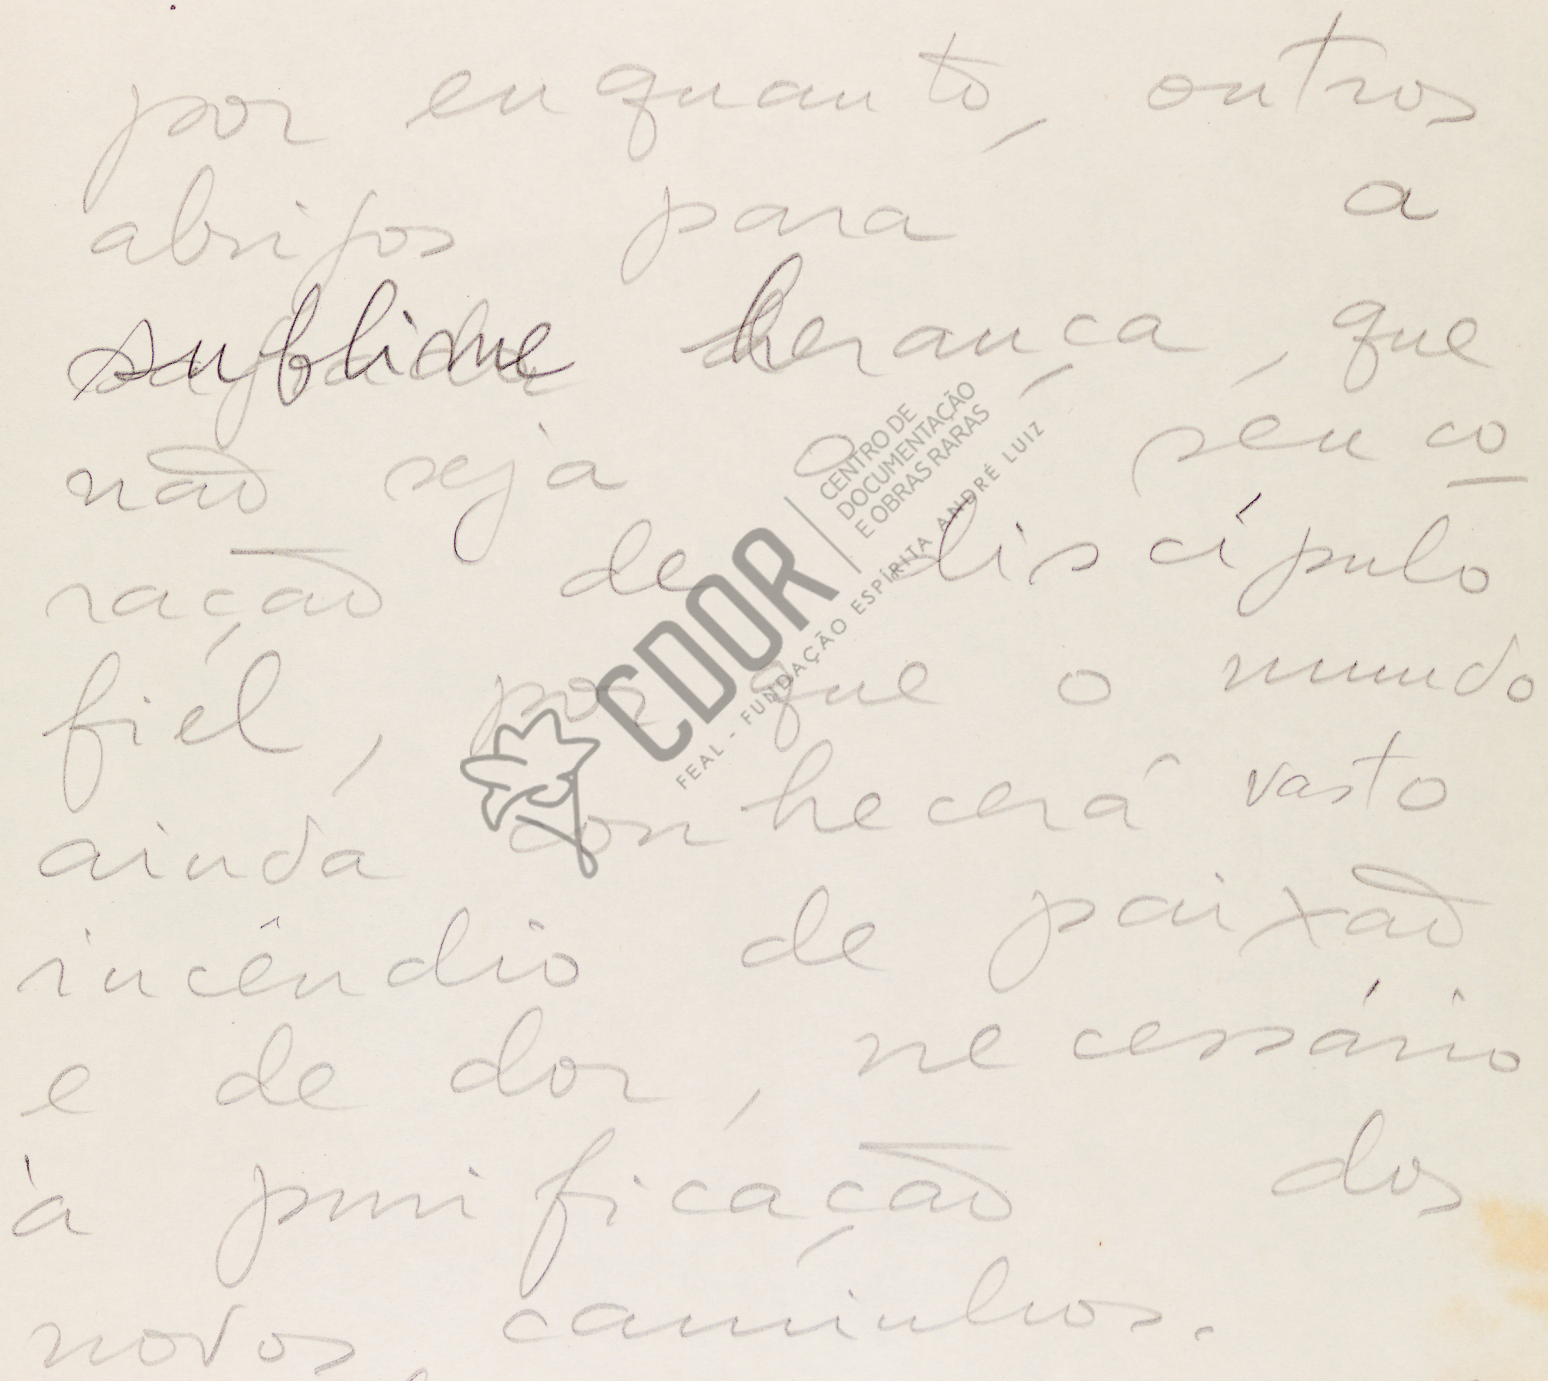 por enquanto, outros
abrigos para a
sublime herança, que
não seja o seu co
ração de discípulo
fiel, por que o mundo
ainda conhecerá vasto
incêndio de paixão
e de dor, necessário
à purificação dos
novos caminhos.
CDOR
CENTRO DE
DOCUMENTAÇÃO
E OBRAS RARAS
FEAL - FUNDAÇÃO ESPÍRITA ANDRÉ LUIZ